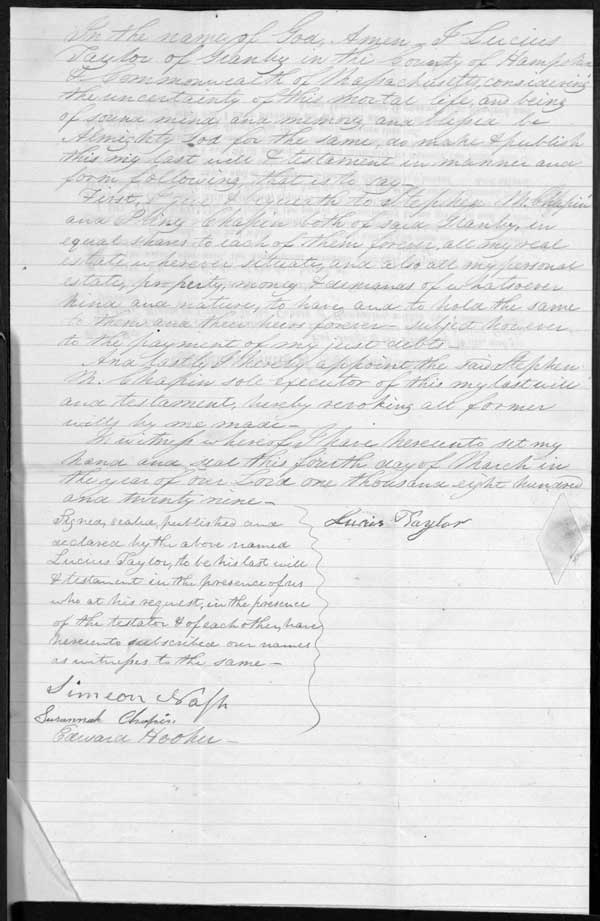 In the name of God, Amen, I Lucius
Taylor of Granby in the County of Hampshire
& Commonwealth of Massachusetts, considering
the uncertainty of this mortal life, and being
of sound mind and memory and blessed be
Almighty God for the same, do make & publish
this my last will & testament in manner and
form following, that is to say—
First, I give & bequeath to Stephen M. Chapin
and Pliny Chapin both of said Granby, in
equal shares to each of them forever, all my real
estate wherever situate, and also all my personal
estate, property, money & demands of whatsoever
kind and nature, to have and to hold the same
to them and their heirs forever— subject however
to the payment of my just debts.
And lastly I hereby appoint the said Stephen
M. Chapin sole executor of this my last will
and testament, hereby revoking all former
wills by me made—
In witness whereof I have hereunto set my
hand and seal this fourth day of March in
the year of our Lord one thousand eight hundred
and twenty nine—
Signed, sealed, published and
declared by the above named
Lucius Taylor, to be his last will
& testament in the presence of us
who at his request, in the presence
of the testator & of each other, have
hereunto subscribed our names
as witnesses to the same—
Lucius Taylor
Simeon Nash
Susannah Chapin
Edward Hooker—